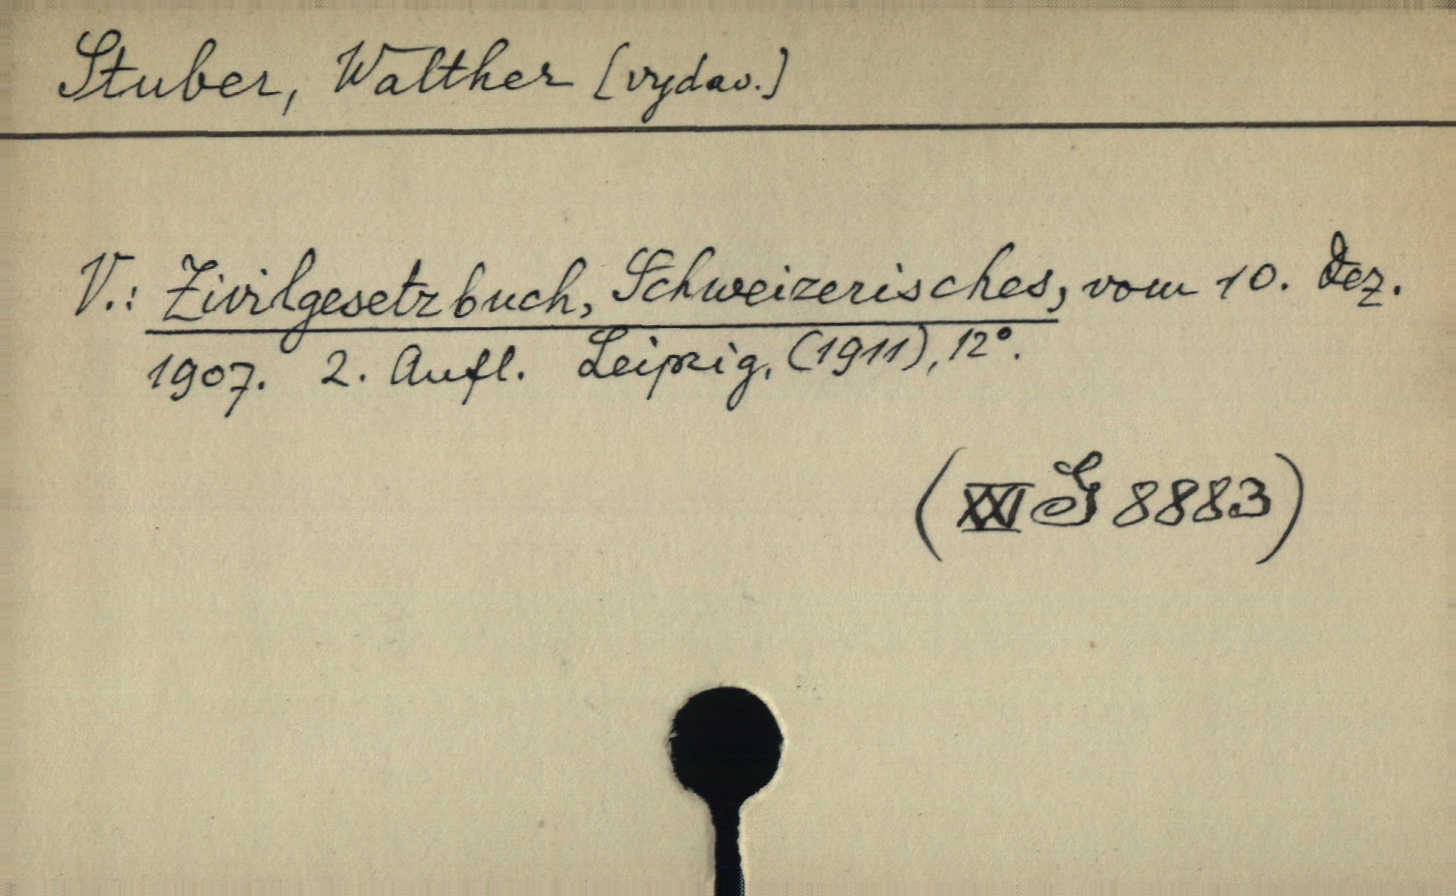 Stuber, Walther [vydav.]
V.: Zivilgesetzbuch, Schweizerisches, vom 10. Dez.
1907. 2. Aufl. Leipzig, (1911), 12°.
(XXI G 8883)